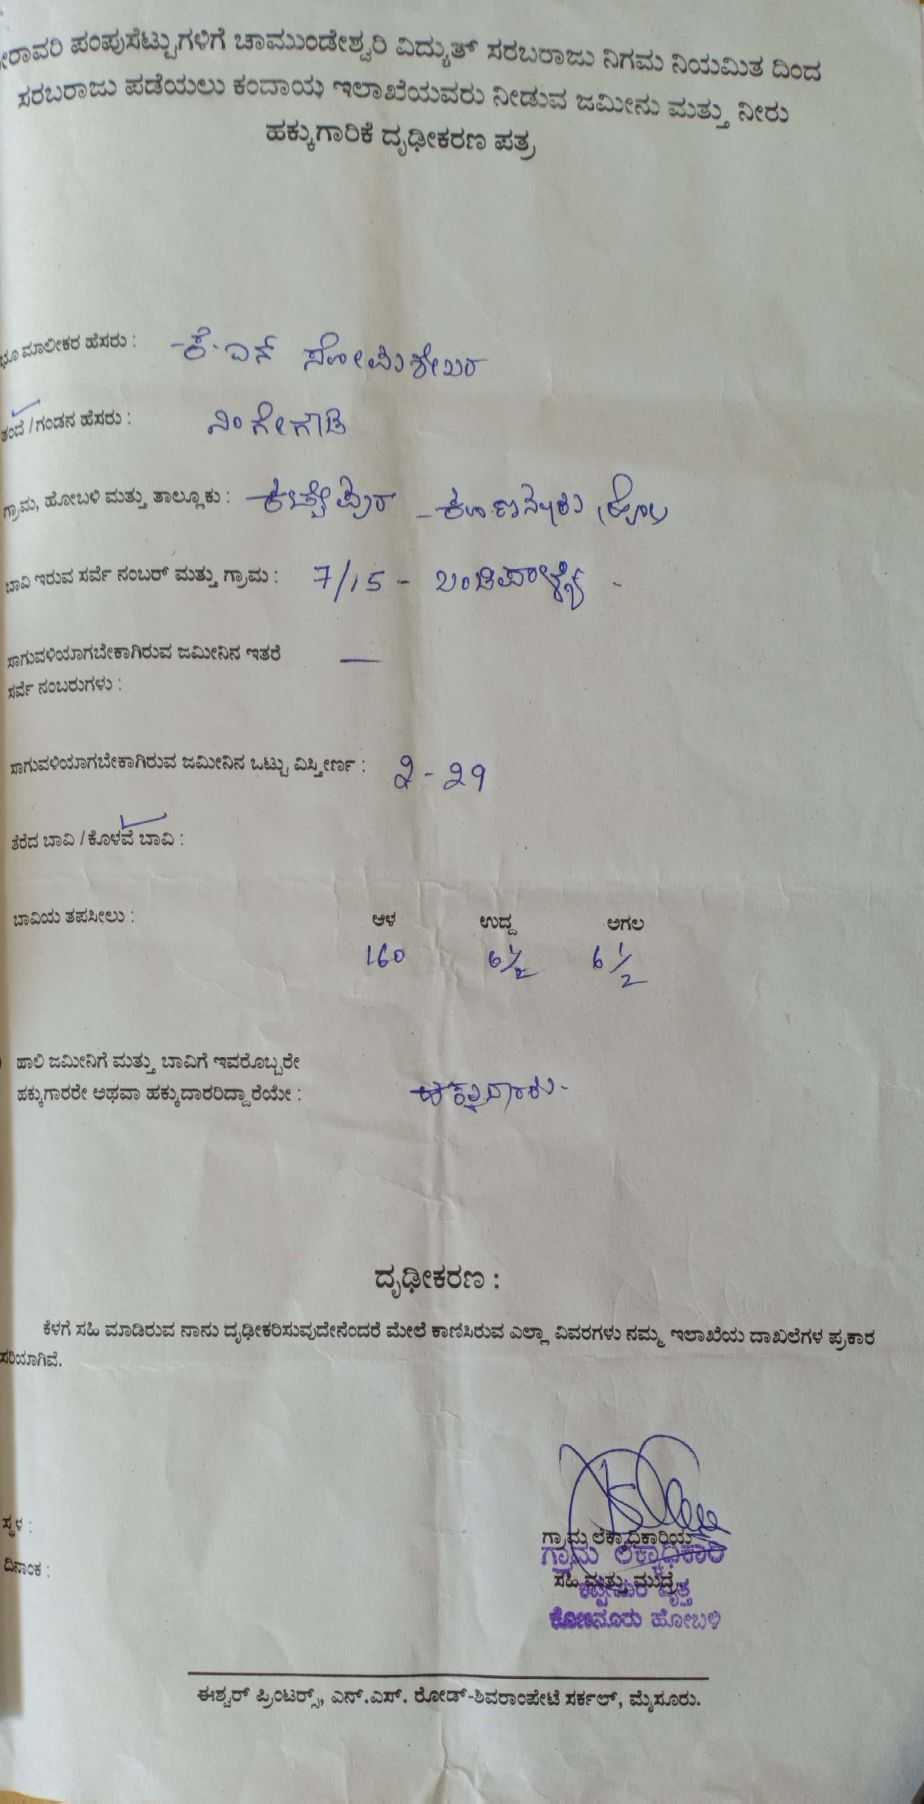 ಪಂಪುಸೆಟ್ಟುಗಳಿಗೆ ಚಾಮುಂಡೇಶ್ವರಿ ವಿದ್ಯುತ್ ಸರಬರಾಜು ನಿಗಮ ನಿಯಮಿತ ದಿಂದ
ಸರಬರಾಜು ಪಡೆಯಲು ಕಂದಾಯ ಇಲಾಖೆಯವರು ನೀಡುವ ಜಮೀನು ಮತ್ತು ನೀರು
ಹಕ್ಕುಗಾರಿಕೆ ದೃಢೀಕರಣ ಪತ್ರ
ಭೂ ಮಾಲೀಕರ ಹೆಸರು : ಕೆ.ಎನ್ ಸೋಮಶೇಖರ
ತಂದೆ / ಗಂಡನ ಹೆಸರು : ನಿಂಗೇಗೌಡ
ಗ್ರಾಮ, ಹೋಬಳಿ ಮತ್ತು ತಾಲ್ಲೂಕು :
ಬಾವಿ ಇರುವ ಸರ್ವೆ ನಂಬರ್ ಮತ್ತು ಗ್ರಾಮ : 7/15 - ಬಂಡಿಪಾಳ್ಯ -
ಸಾಗುವಳಿಯಾಗಬೇಕಾಗಿರುವ ಜಮೀನಿನ ಇತರೆ —
ಸರ್ವೆ ನಂಬರುಗಳು :
ಸಾಗುವಳಿಯಾಗಬೇಕಾಗಿರುವ ಜಮೀನಿನ ಒಟ್ಟು ವಿಸ್ತೀರ್ಣ : 2-29
ತೆರೆದ ಬಾವಿ / ಕೊಳವೆ ಬಾವಿ :
ಬಾವಿಯ ತಪಸೀಲು : ಆಳ ಉದ್ದ ಅಗಲ
160 6½ 6½
ಹಾಲಿ ಜಮೀನಿಗೆ ಮತ್ತು ಬಾವಿಗೆ ಇವರೊಬ್ಬರೇ
ಹಕ್ಕುಗಾರರೇ ಅಥವಾ ಹಕ್ಕುದಾರರಿದ್ದಾರೆಯೇ : ಹಕ್ಕುದಾರರು-
ದೃಢೀಕರಣ :
ಕೆಳಗೆ ಸಹಿ ಮಾಡಿರುವ ನಾನು ದೃಢೀಕರಿಸುವುದೇನೆಂದರೆ ಮೇಲೆ ಕಾಣಿಸಿರುವ ಎಲ್ಲಾ ವಿವರಗಳು ನಮ್ಮ ಇಲಾಖೆಯ ದಾಖಲೆಗಳ ಪ್ರಕಾರ
ಸರಿಯಾಗಿವೆ.
ಸ್ಥಳ :
ದಿನಾಂಕ :
ಗ್ರಾಮ ಲೆಕ್ಕಾಧಿಕಾರಿಯ
ಗ್ರಾಮ ಲೆಕ್ಕಾಧಿಕಾರಿ
ಸಹಿ ಮತ್ತು ಮುದ್ರೆ
ವೃತ್ತ
ಕೋಣನೂರು ಹೋಬಳಿ
ಈಶ್ವರ್ ಪ್ರಿಂಟರ್ಸ್, ಎನ್.ಎಸ್. ರೋಡ್-ಶಿವರಾಂಪೇಟೆ ಸರ್ಕಲ್, ಮೈಸೂರು.